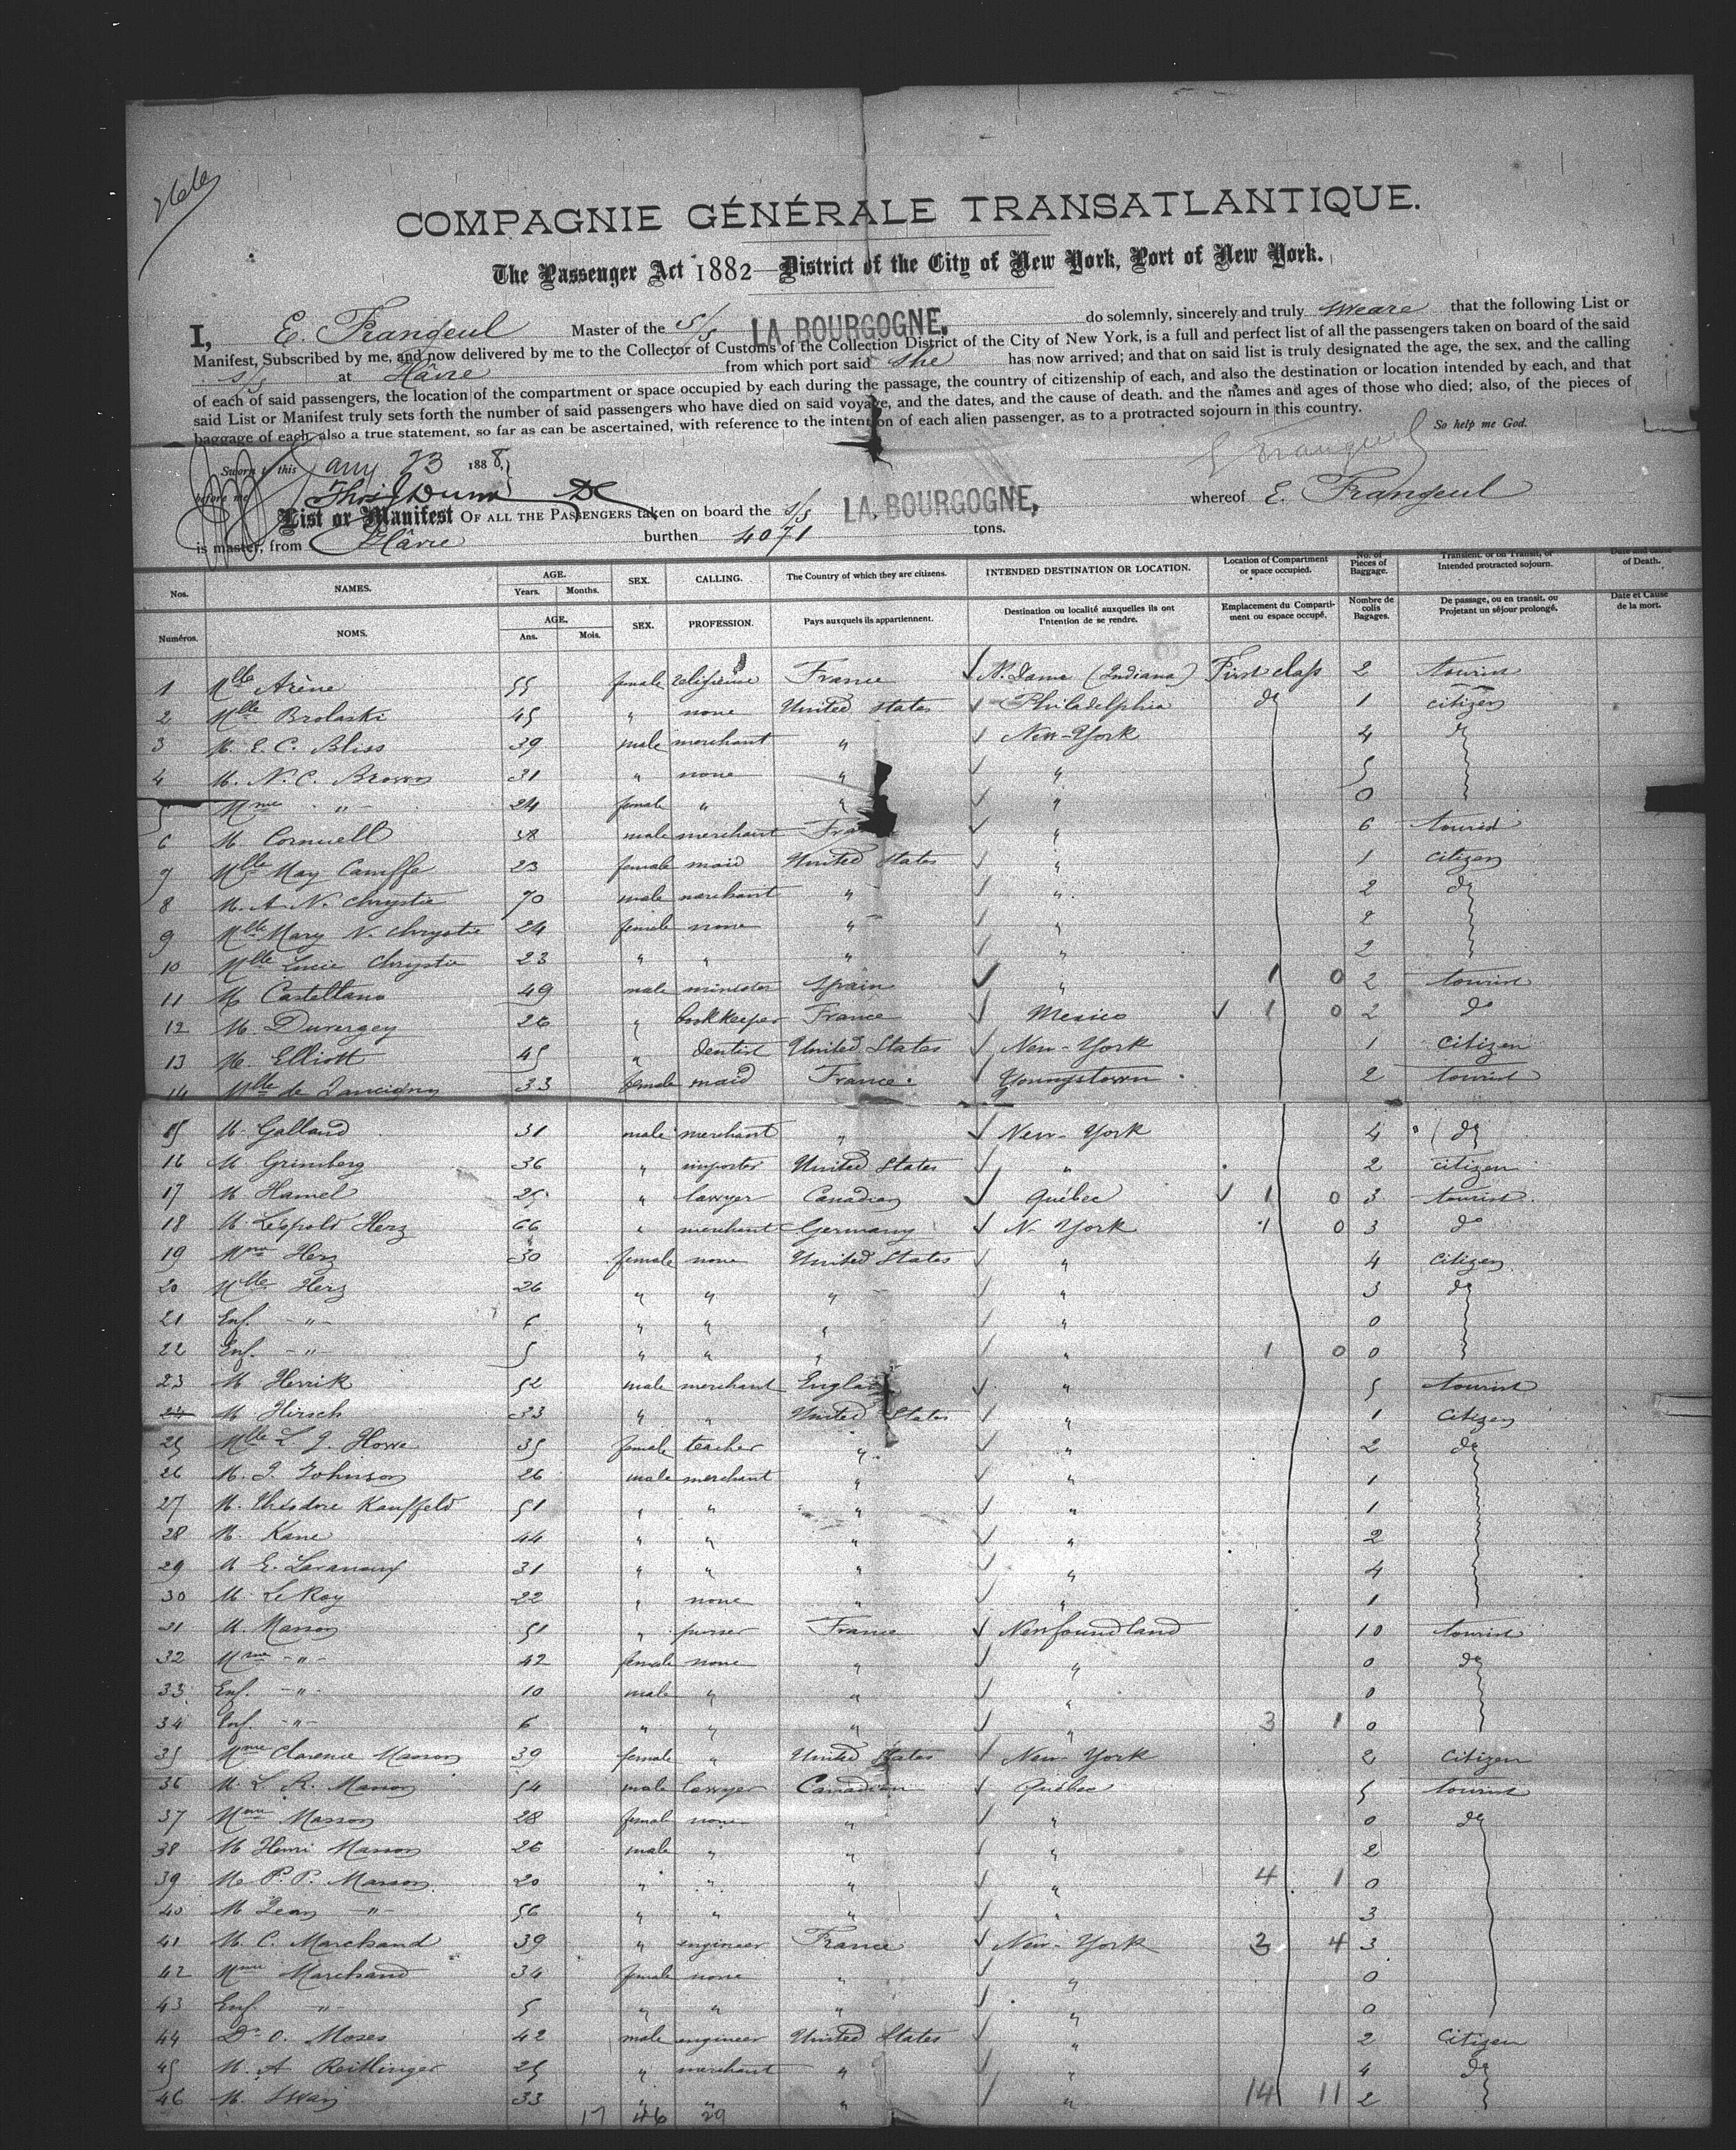 COMPAGNIE GÉNÉRALE TRANSATLANTIQUE.
The Passenger Act 1882—District of the City of New York, Port of New York.
I, E. Frangeul Master of the S/S LA BOURGOGNE. do solemnly, sincerely and truly sweare that the following List or
Manifest, Subscribed by me, and now delivered by me to the Collector of Customs of the Collection District of the City of New York, is a full and perfect list of all the passengers taken on board of the said
S/S at Hâvre from which port said she has now arrived; and that on said list is truly designated the age, the sex, and the calling
of each of said passengers, the location of the compartment or space occupied by each during the passage, the country of citizenship of each, and also the destination or location intended by each, and that
said List or Manifest truly sets forth the number of said passengers who have died on said voyage, and the dates, and the cause of death. and the names and ages of those who died; also, of the pieces of
baggage of each, also a true statement, so far as can be ascertained, with reference to the intention of each alien passenger, as to a protracted sojourn in this country.
So help me God.
E Frangeul
Sworn to this 23 1888,
before me Thos J Dunn DC
List or Manifest OF ALL THE PASSENGERS taken on board the S/S LA BOURGOGNE, whereof E. Frangeul
is master, from Hâvre burthen 4071 tons.
Nos. NAMES. AGE. Years. Months. SEX. CALLING. The Country of which they are citizens. INTENDED DESTINATION OR LOCATION. Location of Compartment or space occupied. No. of Pieces of Baggage. Transient. or on Transit, or Intended protracted sojourn. Date and cause of Death.
Numéros. NOMS. AGE. Ans. Mois. SEX. PROFESSION. Pays auxquels ils appartiennent. Destination ou localité auxquelles ils ont l'intention de se rendre. Emplacement du Compartiment ou espace occupé. Nombre de colis Bagages. De passage, ou en transit, ou Projetant un séjour prolongé. Date et Cause de la mort.
1 Mlle Arène 55 female religieuse France N. Dame (Indiana) First class 2 tourist
2 Mlle Brolaski 45 " none United States Philadelphia do 1 citizen
3 M. E. C. Bliss 39 male merchant " New-York 4 do
4 M. N. C. Brown 31 " none " " 5
5 Mme " 24 female " " " 0
6 M. Cornwell 38 male merchant Fra " 6 tourist
7 Mlle May Camffe 23 female maid United States " 1 citizen
8 M. A. N. Chrystie 70 male merchant " " 2 do
9 Mlle Mary N. Chrystie 24 female none " " 2
10 Mlle Lucie Chrystie 23 " " " " 2
11 M Castellano 49 male minister Spain " 1 0 2 tourist
12 M. Duvergey 26 " bookkeeper France Mexico 1 0 2 do
13 M. Elliott 45 " dentist United States New-York 1 citizen
14 Mlle de 33 female maid France Youngstown 2 tourist
15 M. Galland 31 male merchant " New-York 4 do
16 M. Grimberg 36 " importer United States " 2 citizen
17 M Hamel 25 " lawyer Canadien Québec 1 0 3 tourist
18 M. Léopold Herz 66 " merchant Germany N-York 1 0 3 do
19 Mme Herz 30 female none United States " 4 citizen
20 Mlle Herz 26 " " " " 3 do
21 Enf. " 6 " " " " 0
22 Enf. " 5 " " " " 1 0 0
23 M Herrik 52 male merchant England " 5 tourist
24 M Hirsch 33 " " United States " 1 citizen
25 Mlle L. J. Howe 35 female teacher " " 2 do
26 M. J. Johnson 26 male merchant " " 1
27 M. Théodore Kauffeld 51 " " " " 1
28 M. Kane 44 " " " " 2
29 M E. 31 " " " " 4
30 M. Le Roy 22 " none " " 1
31 M. Masson 51 " purser France Newfoundland 10 tourist
32 Mme " 42 female none " " 0 do
33 Enf. " 10 male " " " 0
34 Enf. " 6 " " " " 3 1 0
35 Mme Clarence Masson 39 female " United States New-York 2 citizen
36 M. L. R. Masson 54 male lawyer Canadien Québec 5 tourist
37 Mme Masson 28 female none " " 0 do
38 M Henri Masson 26 male " " " 2
39 M. P. P. Masson 20 " " " " 4 1 0
40 M Jean " 56 " " " " 3
41 M. C. Marchand 39 " engineer France New-York 3 4 3
42 Mme Marchand 34 female none " " 0
43 Enf " 5 " " " " 0
44 Dr O. Moses 42 male engineer United States " 2 Citizen
45 M. A Reitlinger 25 " merchant " " 4 do
46 M. Swan 33 " " " " 14 11 2
17 46 29